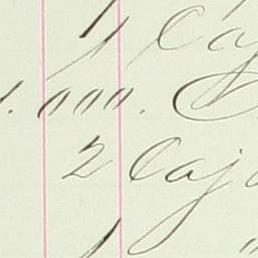 1 Caj
1.000.
2 Caj
1